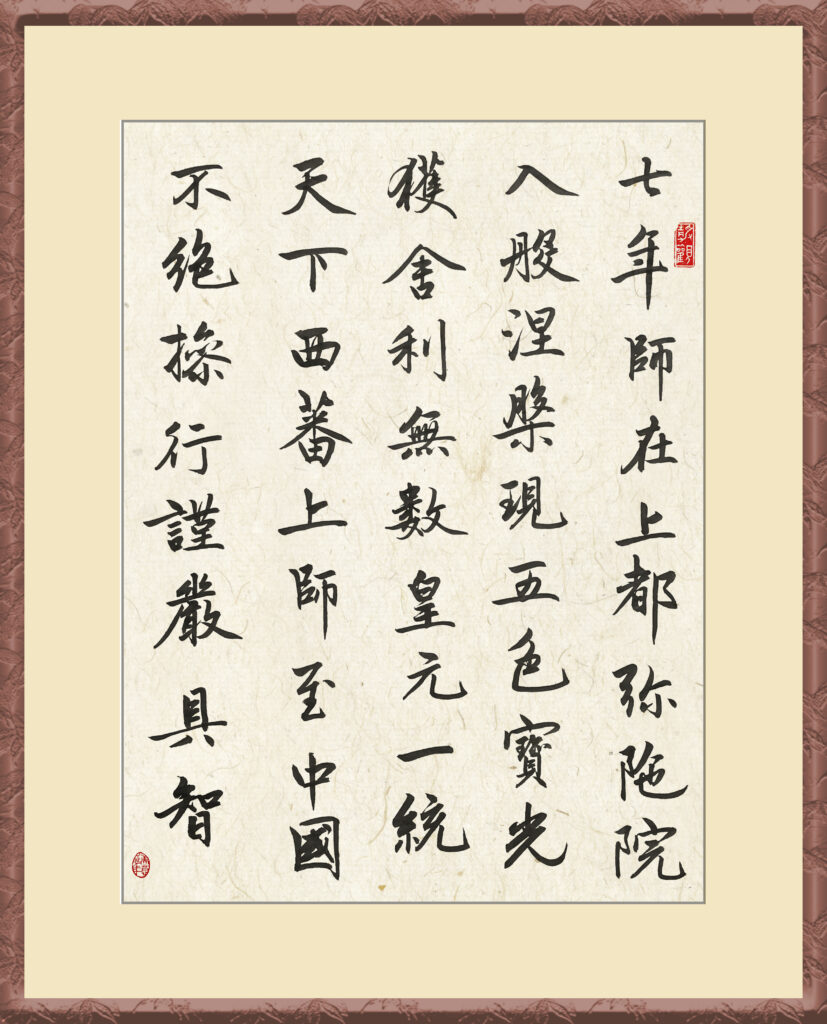 七年師在上都弥陁院
入般涅槃現五色寶光
獲舍利無數皇元一統
天下西蕃上師至中國
不絕操行謹嚴具智